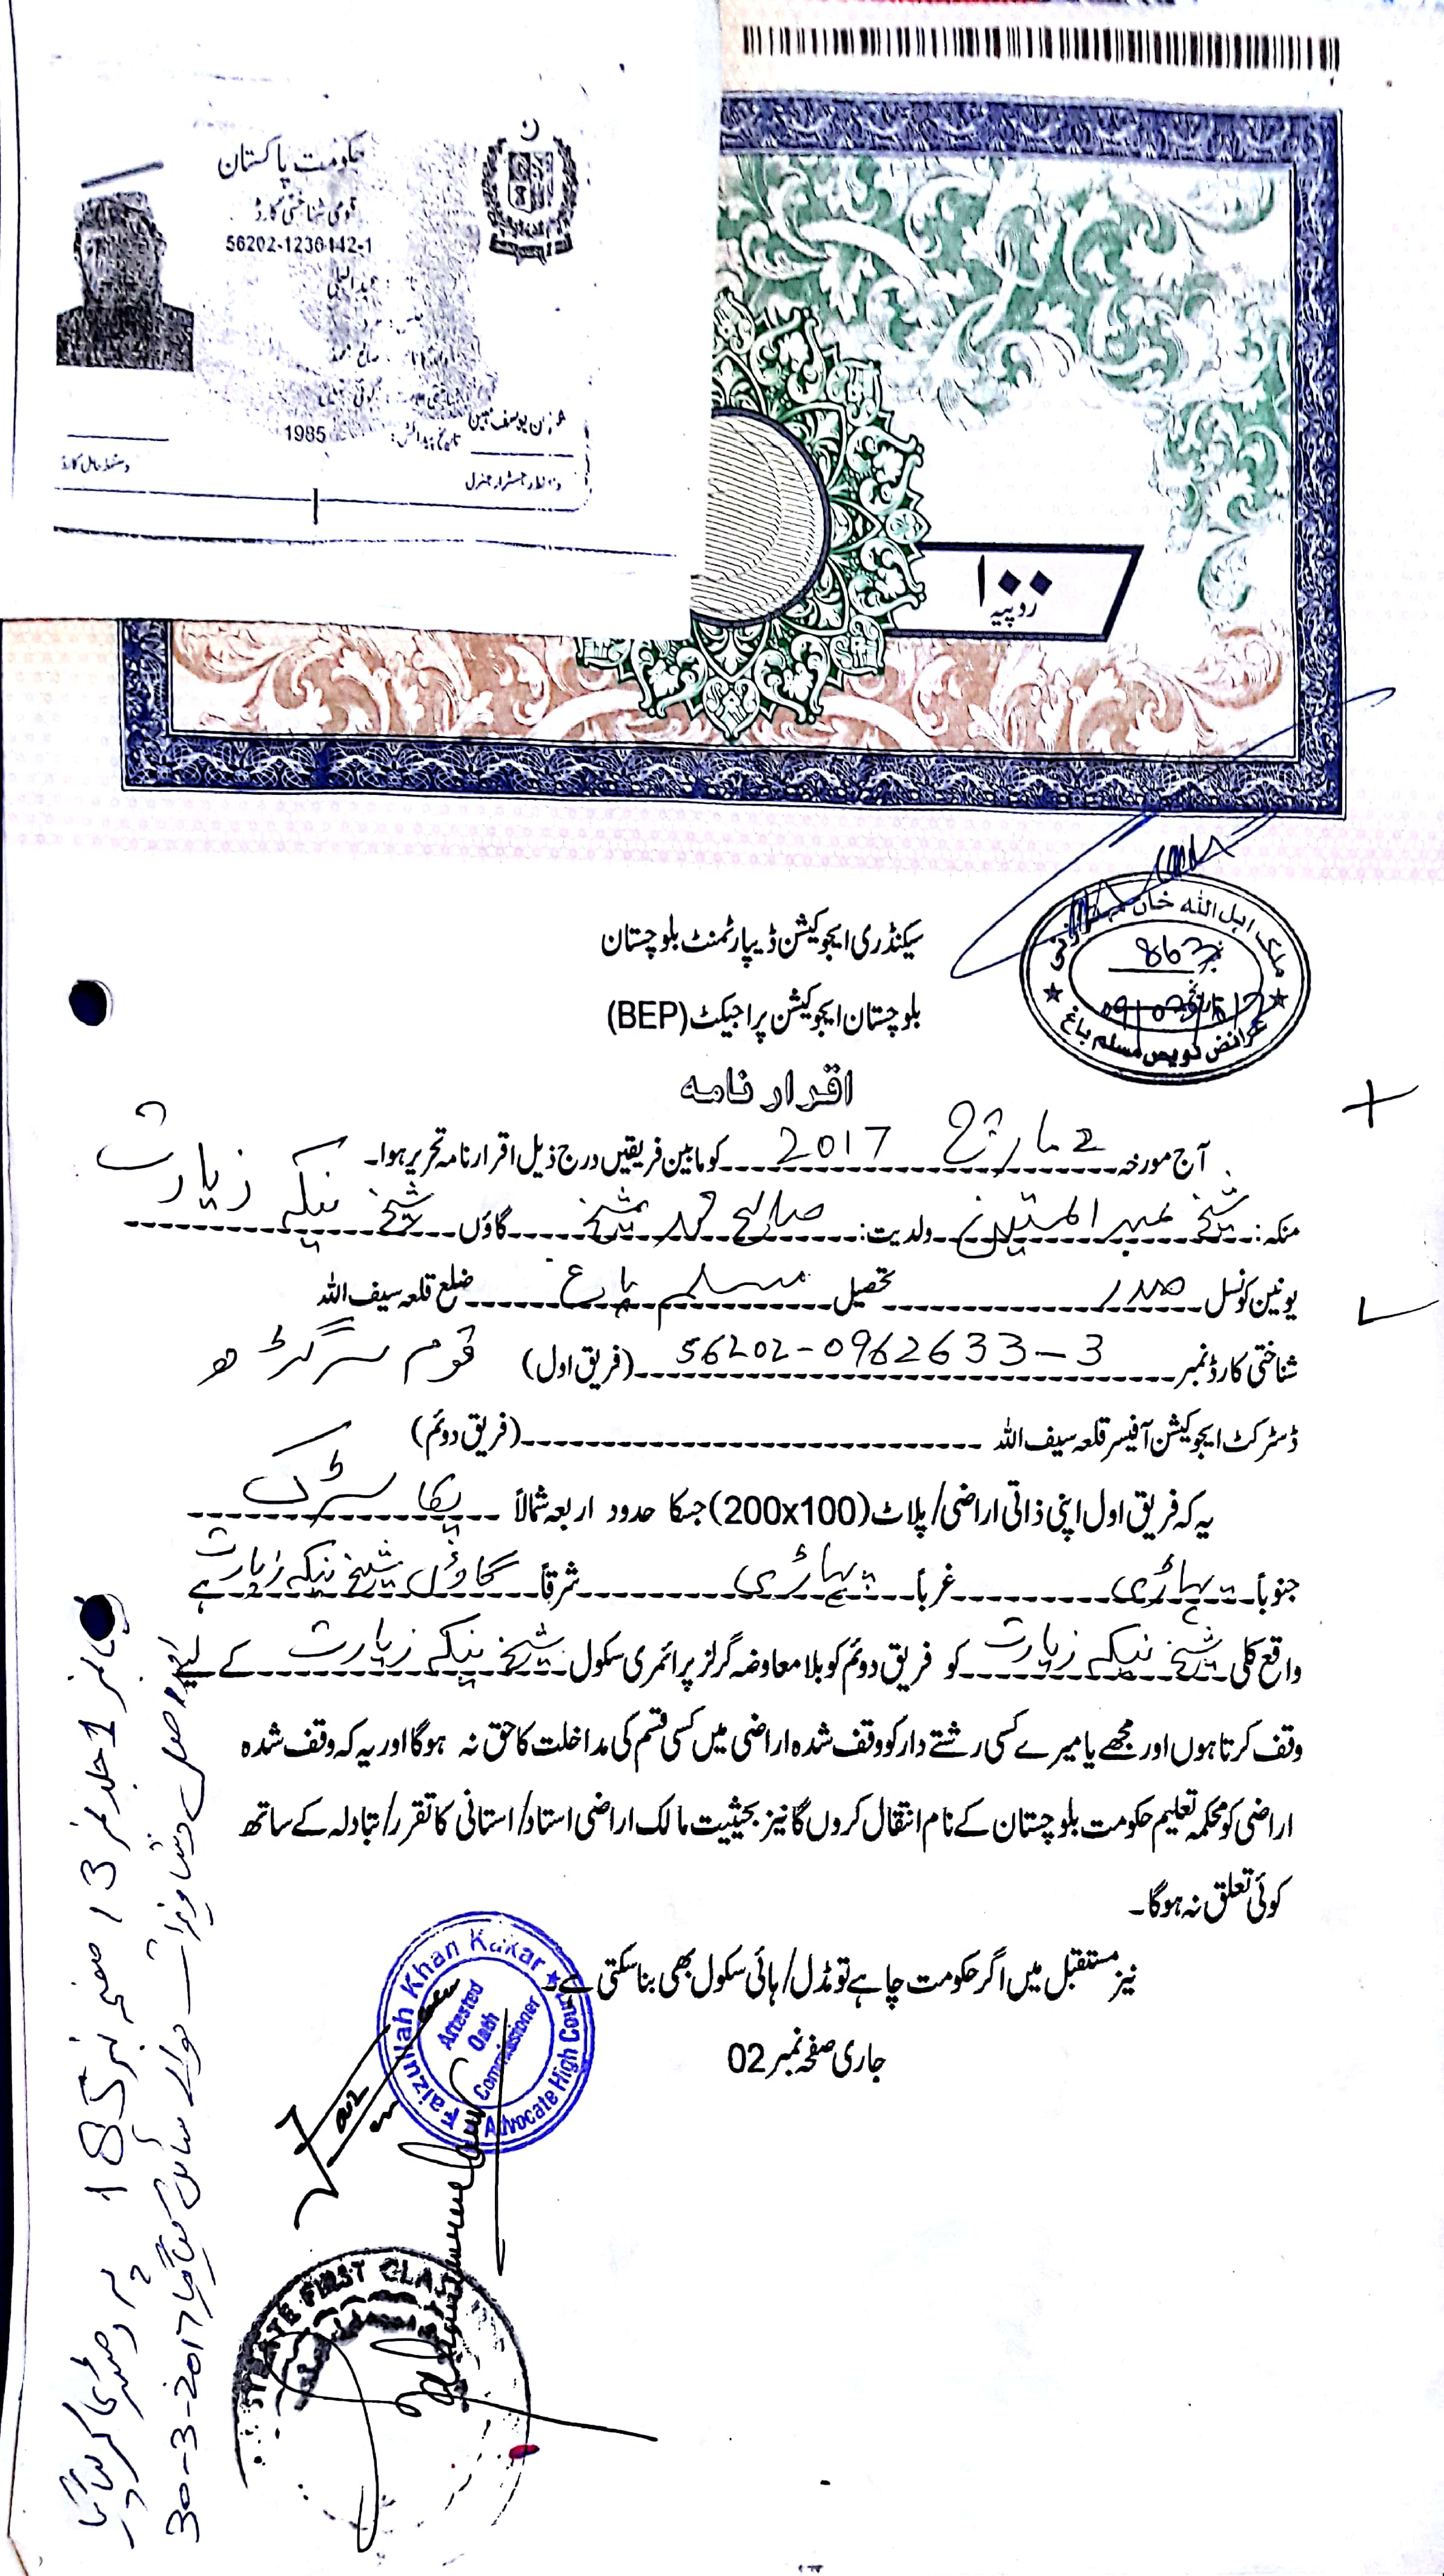 حکومت پاکستان
قومی شناختی کارڈ
56202-1236142-1
تاریخ پیدائش: 1985
دستخط حامل کارڈ
دستخط رجسٹرار جنرل
۱۰۰
روپیہ
ملک اہل اللہ خان
نمبر 863
عرائض نویس مسلم باغ
سیکنڈری ایجوکیشن ڈیپارٹمنٹ بلوچستان
بلوچستان ایجوکیشن پراجیکٹ (BEP)
اقرار نامہ
آج مورخہ 2 مارچ 2017 کو مابین فریقین درج ذیل اقرار نامہ تحریر ہوا۔
منکہ: شیخ عبدالمتین ولدیت: صالح محمد شیخ گاؤں شیخ نیکہ زیارت
یونین کونسل صدر تحصیل مسلم باغ ضلع قلعہ سیف اللہ
شناختی کارڈ نمبر 56202-0962633-3 (فریق اول) قوم سرگڑھ
ڈسٹرکٹ ایجوکیشن آفیسر قلعہ سیف اللہ (فریق دوئم)
یہ کہ فریق اول اپنی ذاتی اراضی/پلاٹ (200x100) جسکا حدود اربعہ شمالاً پکا سڑک
جنوباً پہاڑی غرباً پہاڑی شرقاً گاؤں شیخ نیکہ زیارت ہے
واقع کلی شیخ نیکہ زیارت کو فریق دوئم کو بلا معاوضہ گرلز پرائمری سکول شیخ نیکہ زیارت کے لیے
وقف کرتا ہوں اور مجھے یا میرے کسی رشتے دار کو وقف شدہ اراضی میں کسی قسم کی مداخلت کا حق نہ ہوگا اور یہ کہ وقف شدہ
اراضی کو محکمہ تعلیم حکومت بلوچستان کے نام انتقال کروں گا نیز بحیثیت مالک اراضی استاد/استانی کا تقرر/تبادلہ کے ساتھ
کوئی تعلق نہ ہوگا۔
نیز مستقبل میں اگر حکومت چاہے تو مڈل/ہائی سکول بھی بنا سکتی ہے۔
جاری صفحہ نمبر 02
Faizullah Khan Kakar
Advocate High Court
Attested
Oath
Commissioner
FIRST CLASS
نمبر 1 جلد نمبر 13 صفحہ نمبر 185 پر رجسٹری کر دی گئی
اور اصل دستاویزات حوالے سائل کیا گیا 30-3-2017